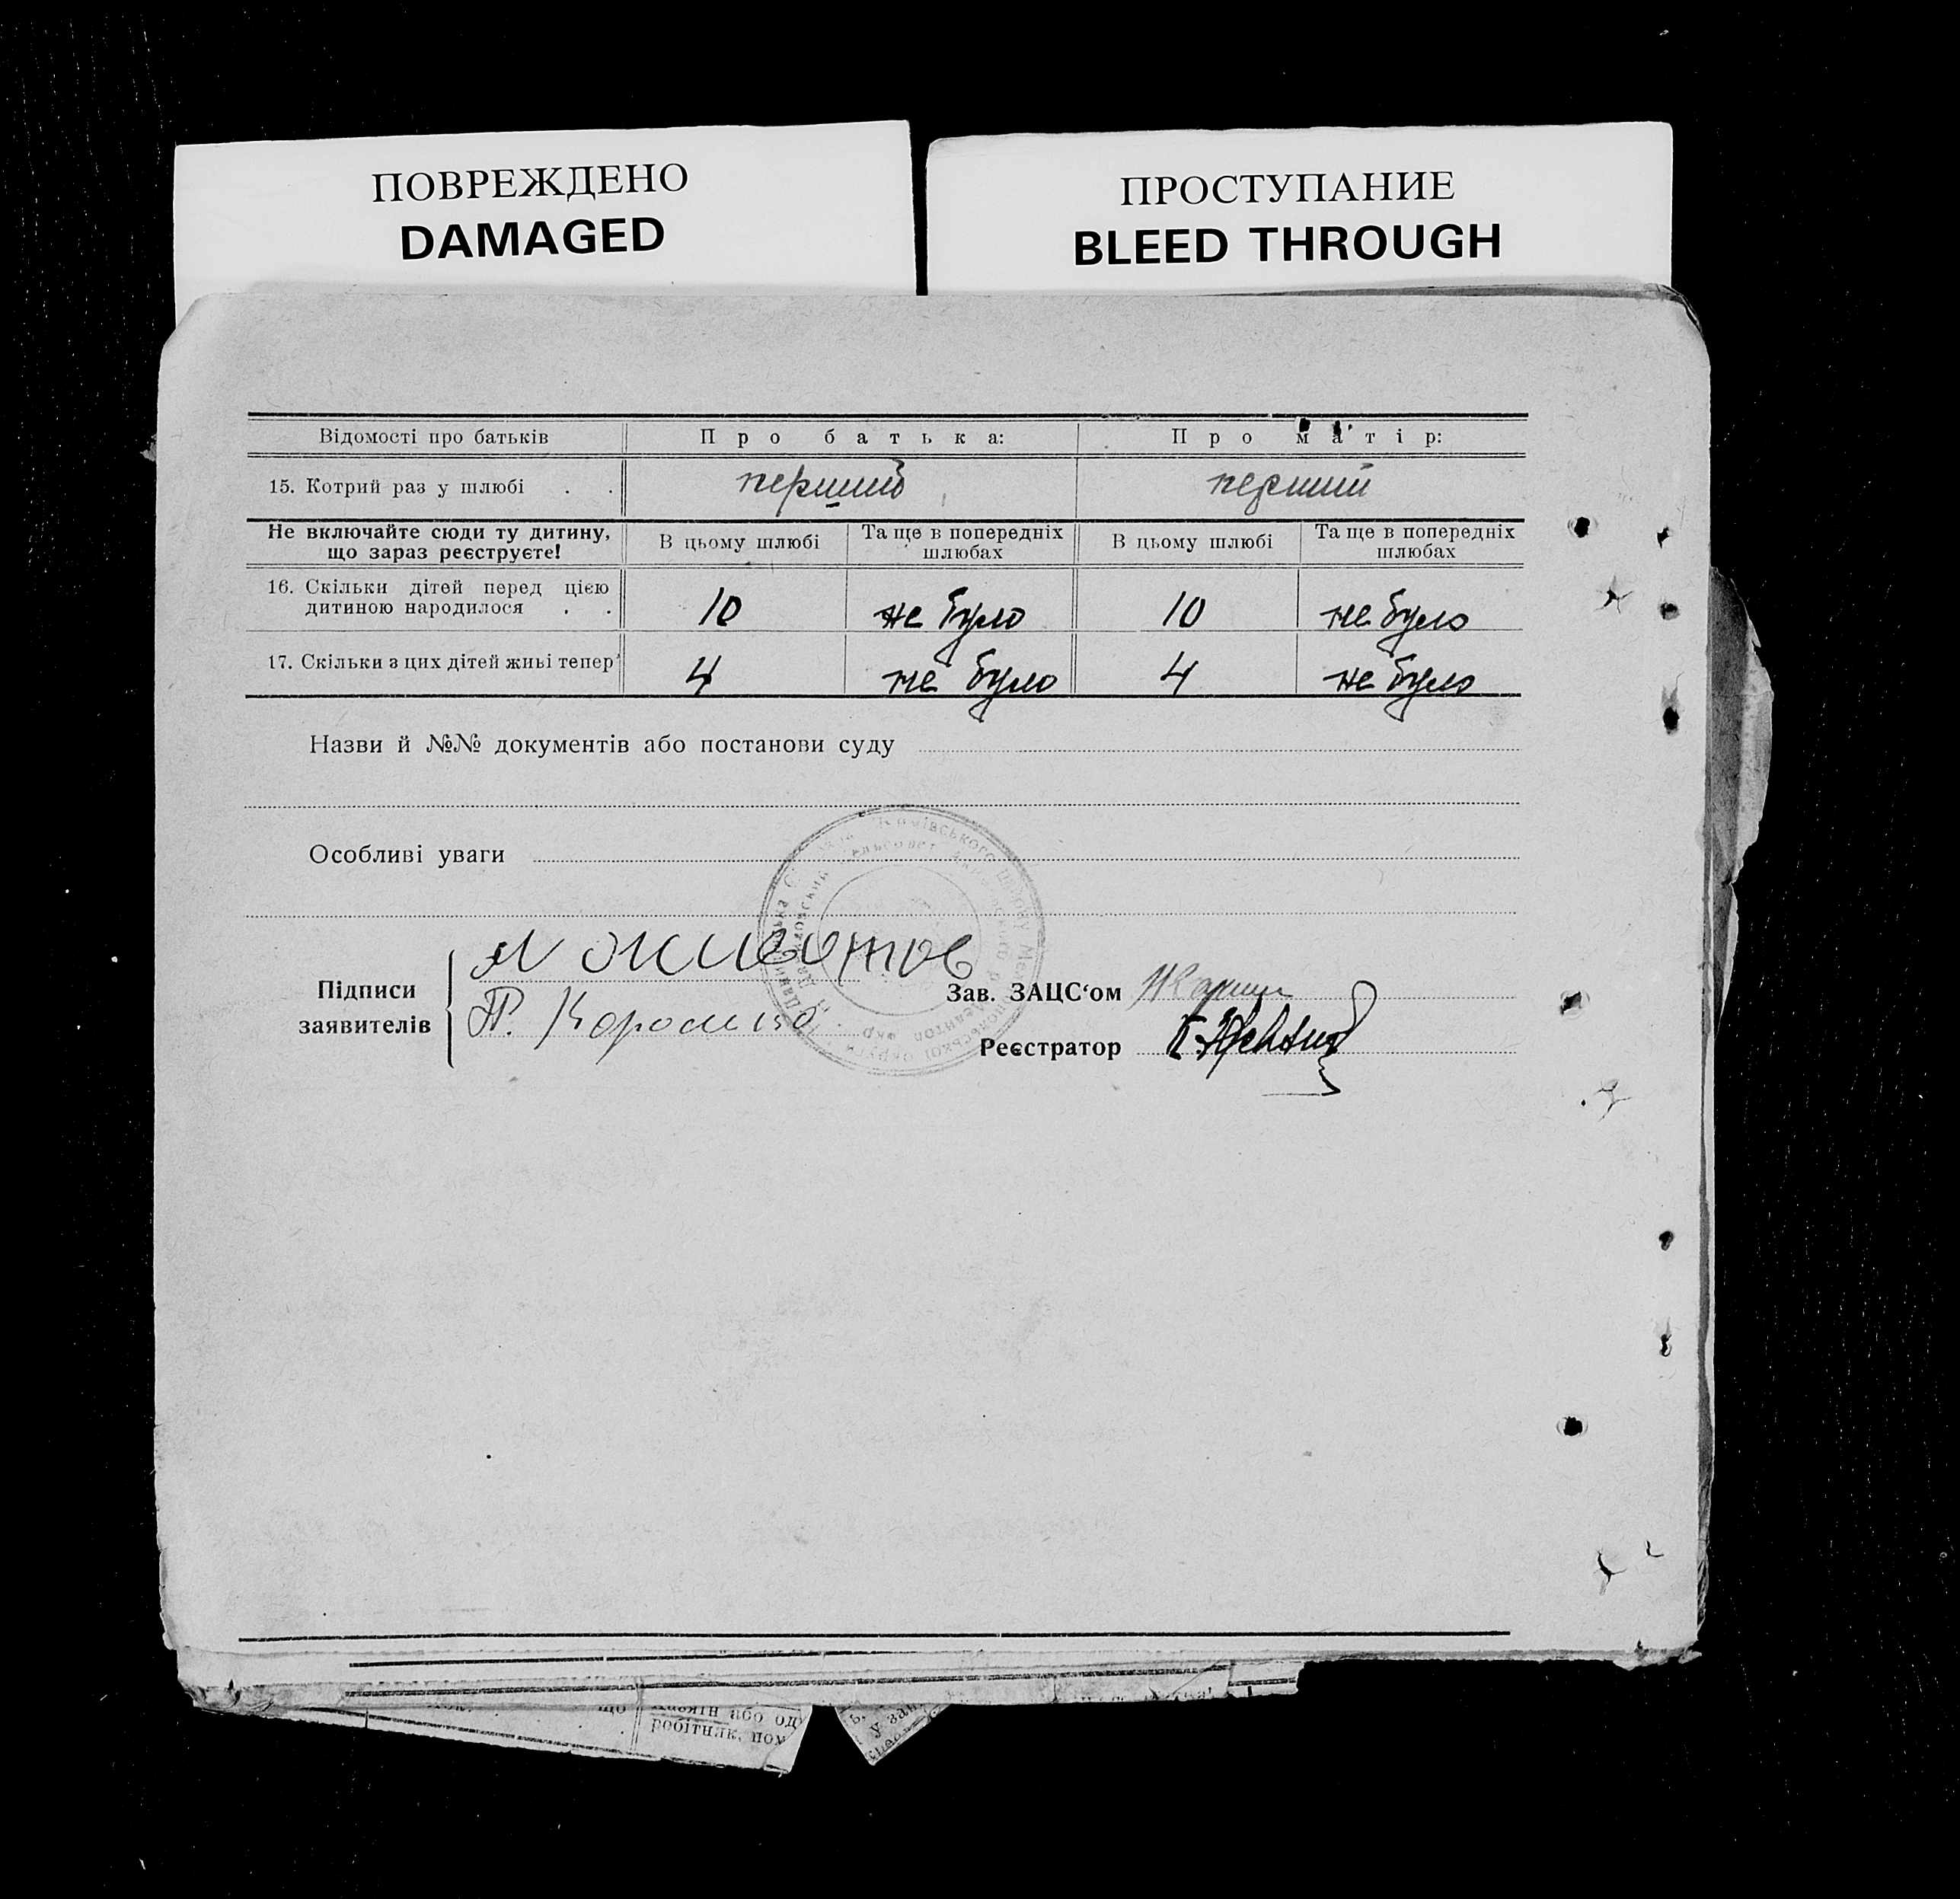 ПОВРЕЖДЕНО
DAMAGED
ПРОСТУПАНИЕ
BLEED THROUGH
Відомості про батьків Про батька: Про матір:
15. Котрий раз у шлюбі . . перший перший
Не включайте сюди ту дитину, що зараз реєструєте! В цьому шлюбі Та ще в попередніх шлюбах В цьому шлюбі Та ще в попередніх шлюбах
16. Скільки дітей перед цією
дитиною народилося . . 10 не було 10 не було
17. Скільки з цих дітей живі тепер 4 не було 4 не було
Назви й №№ документів або постанови суду
Особливі уваги
Підписи заявителів
Животов
Зав. ЗАЦС‘ом
Реєстратор
або од
робітник, пом